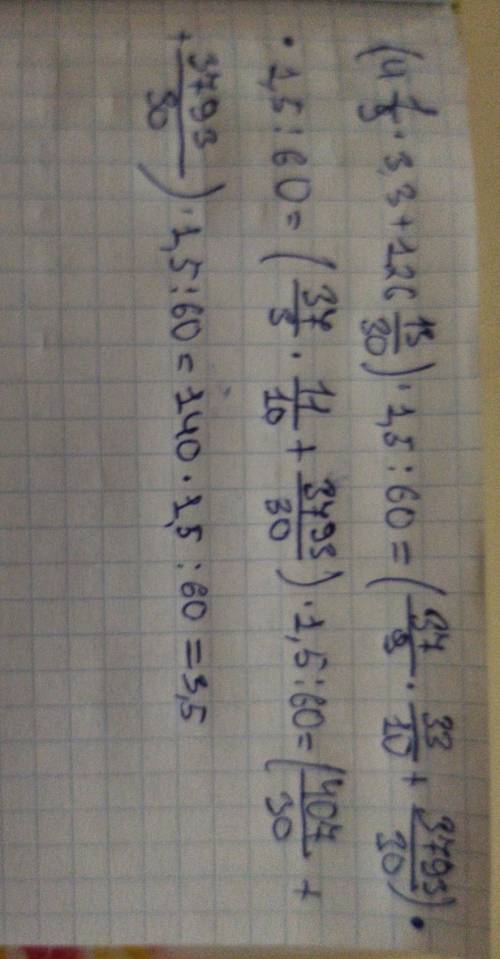 (4 1/9 · 3,3 + 126 13/30) · 1,5 : 60 = (37/9 · 33/10 + 3793/30) ·
· 1,5 : 60 = (37/3 · 11/10 + 3793/30) · 1,5 : 60 = (407/30 +
+ 3793/30) · 1,5 : 60 = 140 · 1,5 : 60 = 3,5